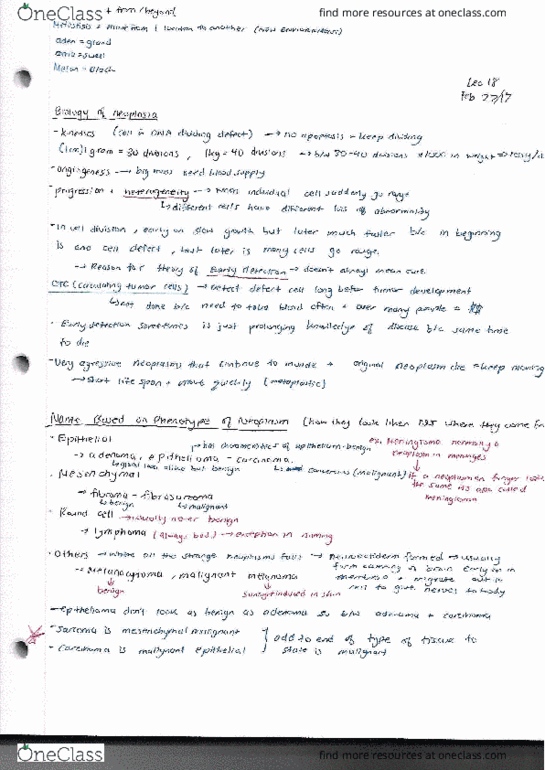 OneClass
find more resources at oneclass.com
+ from/beyond
Metastasis + move from 1 location to another (new environment)
aden = gland
onco = swell
Melan = black
Lec 18
Feb 27/17
Biology of Neoplasia
- kinetics (cell in DNA dividing defect) → no apoptosis - keep dividing
1 gram = 30 divisions, 1kg = 40 divisions → b/w 30-40 divisions x1000 in weight
- angiogenesis → big mass need blood supply
- progression + heterogeneity → when individual cell suddenly go rage
↳ different cells have different of abnormality
- In cell division, early on slow growth but later much faster b/c in beginning
is one cell defect, but later is many cells go rage.
→ Reason for theory of early detection → doesn't always mean cure
CTC (circulating tumor cells) → Detect defect cell long before tumor development
↳ not done b/c need to take blood often + over many people =
- Early detection sometimes is just prolonging knowledge of disease b/c same time
to die
- Very agressive neoplasms that continue to mutate + original neoplasm die = keep moving
→ Short life span + move quickly (metaplastic)
Name Based on Phenotype of Neoplasm (how they look like NOT where they come from
- Epithelial
↳ has characteristics of epithelium - benign
→ adenoma, epithelioma - carcinoma.
↳ look alike but benign
↳ cancerous (malignant)
ex. Meningioma normally a
neoplasm in meninges
if a neoplasm on finger looks
the same its also called
meningioma
- Mesenchymal
→ fibroma - fibrosarcoma
↳ benign ↳ malignant
- Round cell → usually never benign
→ lymphoma (always bad) → exception in naming
- Others → where all the strange neoplasms falls → Neuroectoderm formed → usually
form cannery in brain early on in
+ migrate out in
to give nerves to body
→ Melanocytoma, malignant melanoma
benign
sunlight induced in skin
- epithelioma don't look as benign as adenoma so b/w adenoma + carcinoma
- Sarcoma is mesenchymal malignant
- Carcinoma is malignant epithelial
} add to end of type of tissue to
state is malignant
OneClass
find more resources at oneclass.com